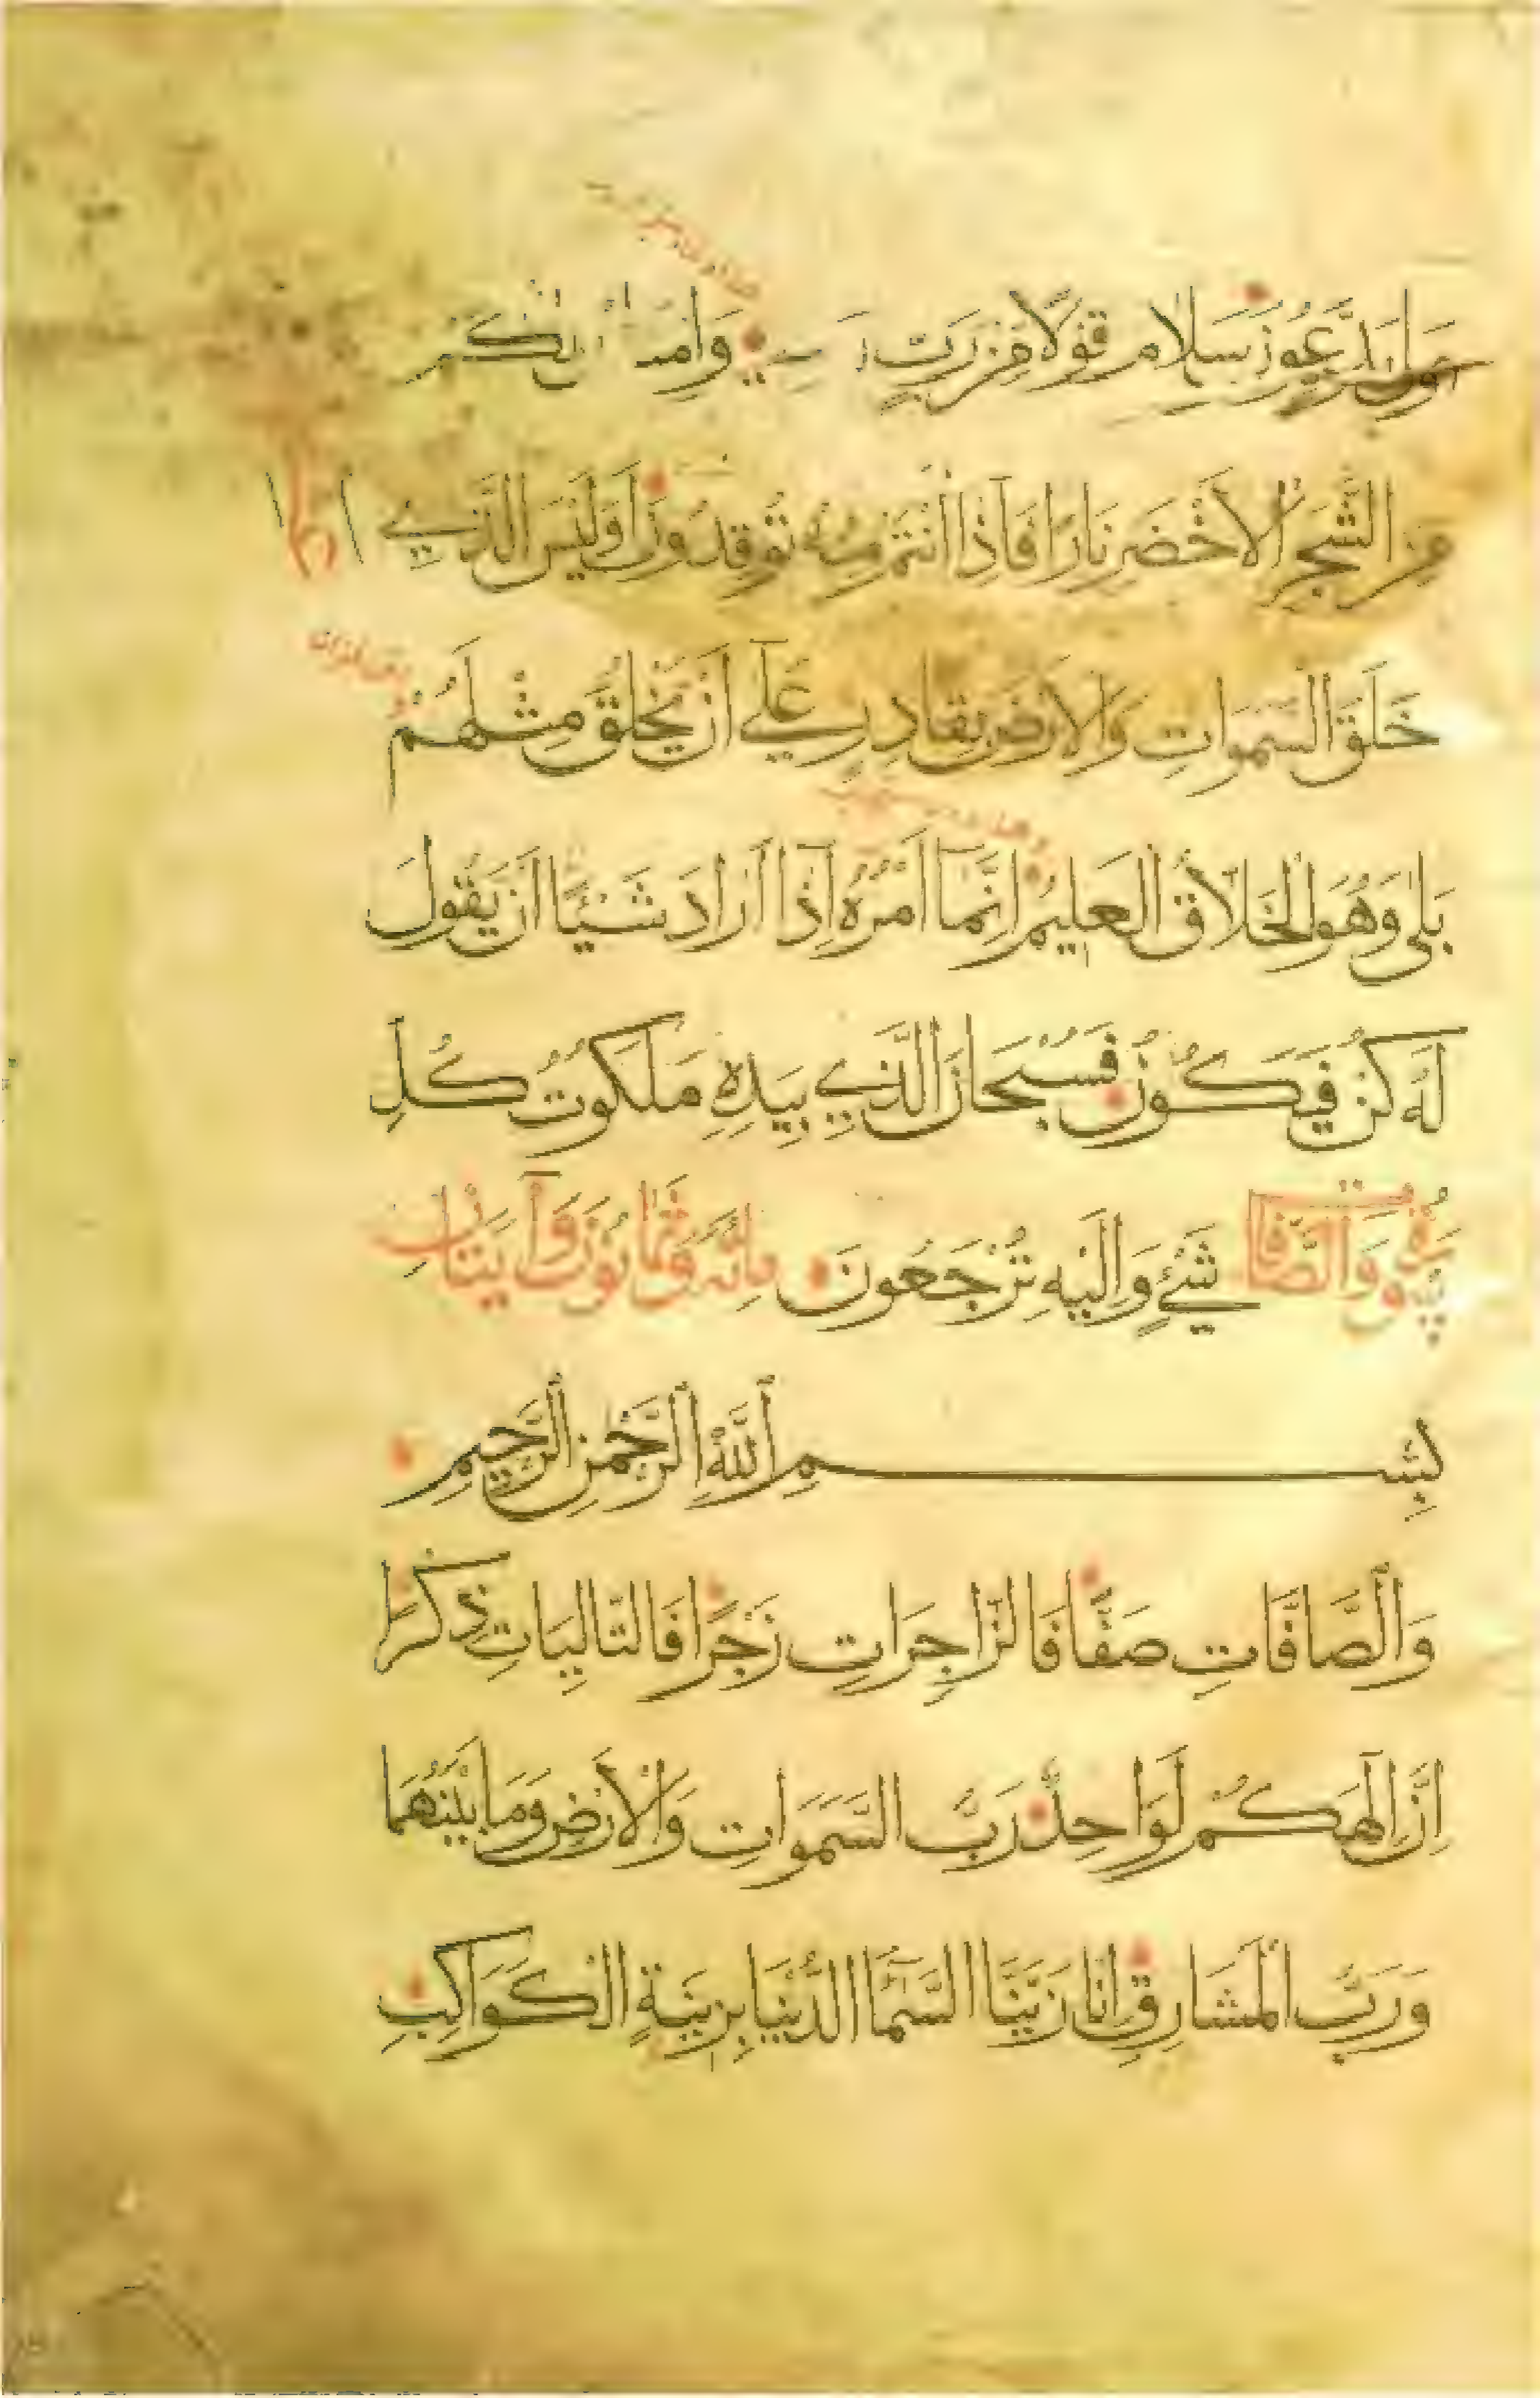 يَدَّعُونَ سَلَامٌ قَوْلًا مِنْ رَبٍّ
مِنَ الشَّجَرِ الْاَخْضَرِ نَارًا فَاِذَا اَنْتُمْ مِنْهُ تُوقِدُونَ اَوَلَيْسَ الَّذِي
خَلَقَ السَّمَوَاتِ وَالْاَرْضَ بِقَادِرٍ عَلَى اَنْ يَخْلُقَ مِثْلَهُمْ
بَلَى وَهُوَ الْخَلَّاقُ الْعَلِيمُ اِنَّمَا اَمْرُهُ اِذَا اَرَادَ شَيْئًا اَنْ يَقُولَ
لَهُ كُنْ فَيَكُونُ فَسُبْحَانَ الَّذِي بِيَدِهِ مَلَكُوتُ كُلِّ
سُورَةُ وَالصَّافَّاتِ شَيْءٍ وَاِلَيْهِ تُرْجَعُونَ مِائَةٌ وَثَمَانُونَ وَآيَتَانِ
بِسْمِ اللَّهِ الرَّحْمَنِ الرَّحِيمِ
وَالصَّافَّاتِ صَفًّا فَالزَّاجِرَاتِ زَجْرًا فَالتَّالِيَاتِ ذِكْرًا
اِنَّ اِلَهَكُمْ لَوَاحِدٌ رَبُّ السَّمَوَاتِ وَالْاَرْضِ وَمَا بَيْنَهُمَا
وَرَبُّ الْمَشَارِقِ اِنَّا زَيَّنَّا السَّمَآءَ الدُّنْيَا بِزِينَةٍ الْكَوَاكِبِ